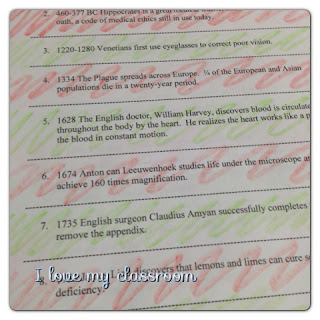 2. 460-377 BC Hippocrates is a great medical
oath, a code of medical ethics still in use today.
3. 1220-1280 Venetians first use eyeglasses to correct poor vision.
4. 1334 The Plague spreads across Europe. ¾ of the European and Asian
populations die in a twenty-year period.
5. 1628 The English doctor, William Harvey, discovers blood is circulate
throughout the body by the heart. He realizes the heart works like a p
the blood in constant motion.
6. 1674 Anton can Leeuwenhoek studies life under the microscope a
achieve 160 times magnification.
7. 1735 English surgeon Claudius Amyan successfully completes
remove the appendix.
8. discovers that lemons and limes can cure s
deficiency.
I love my classroom